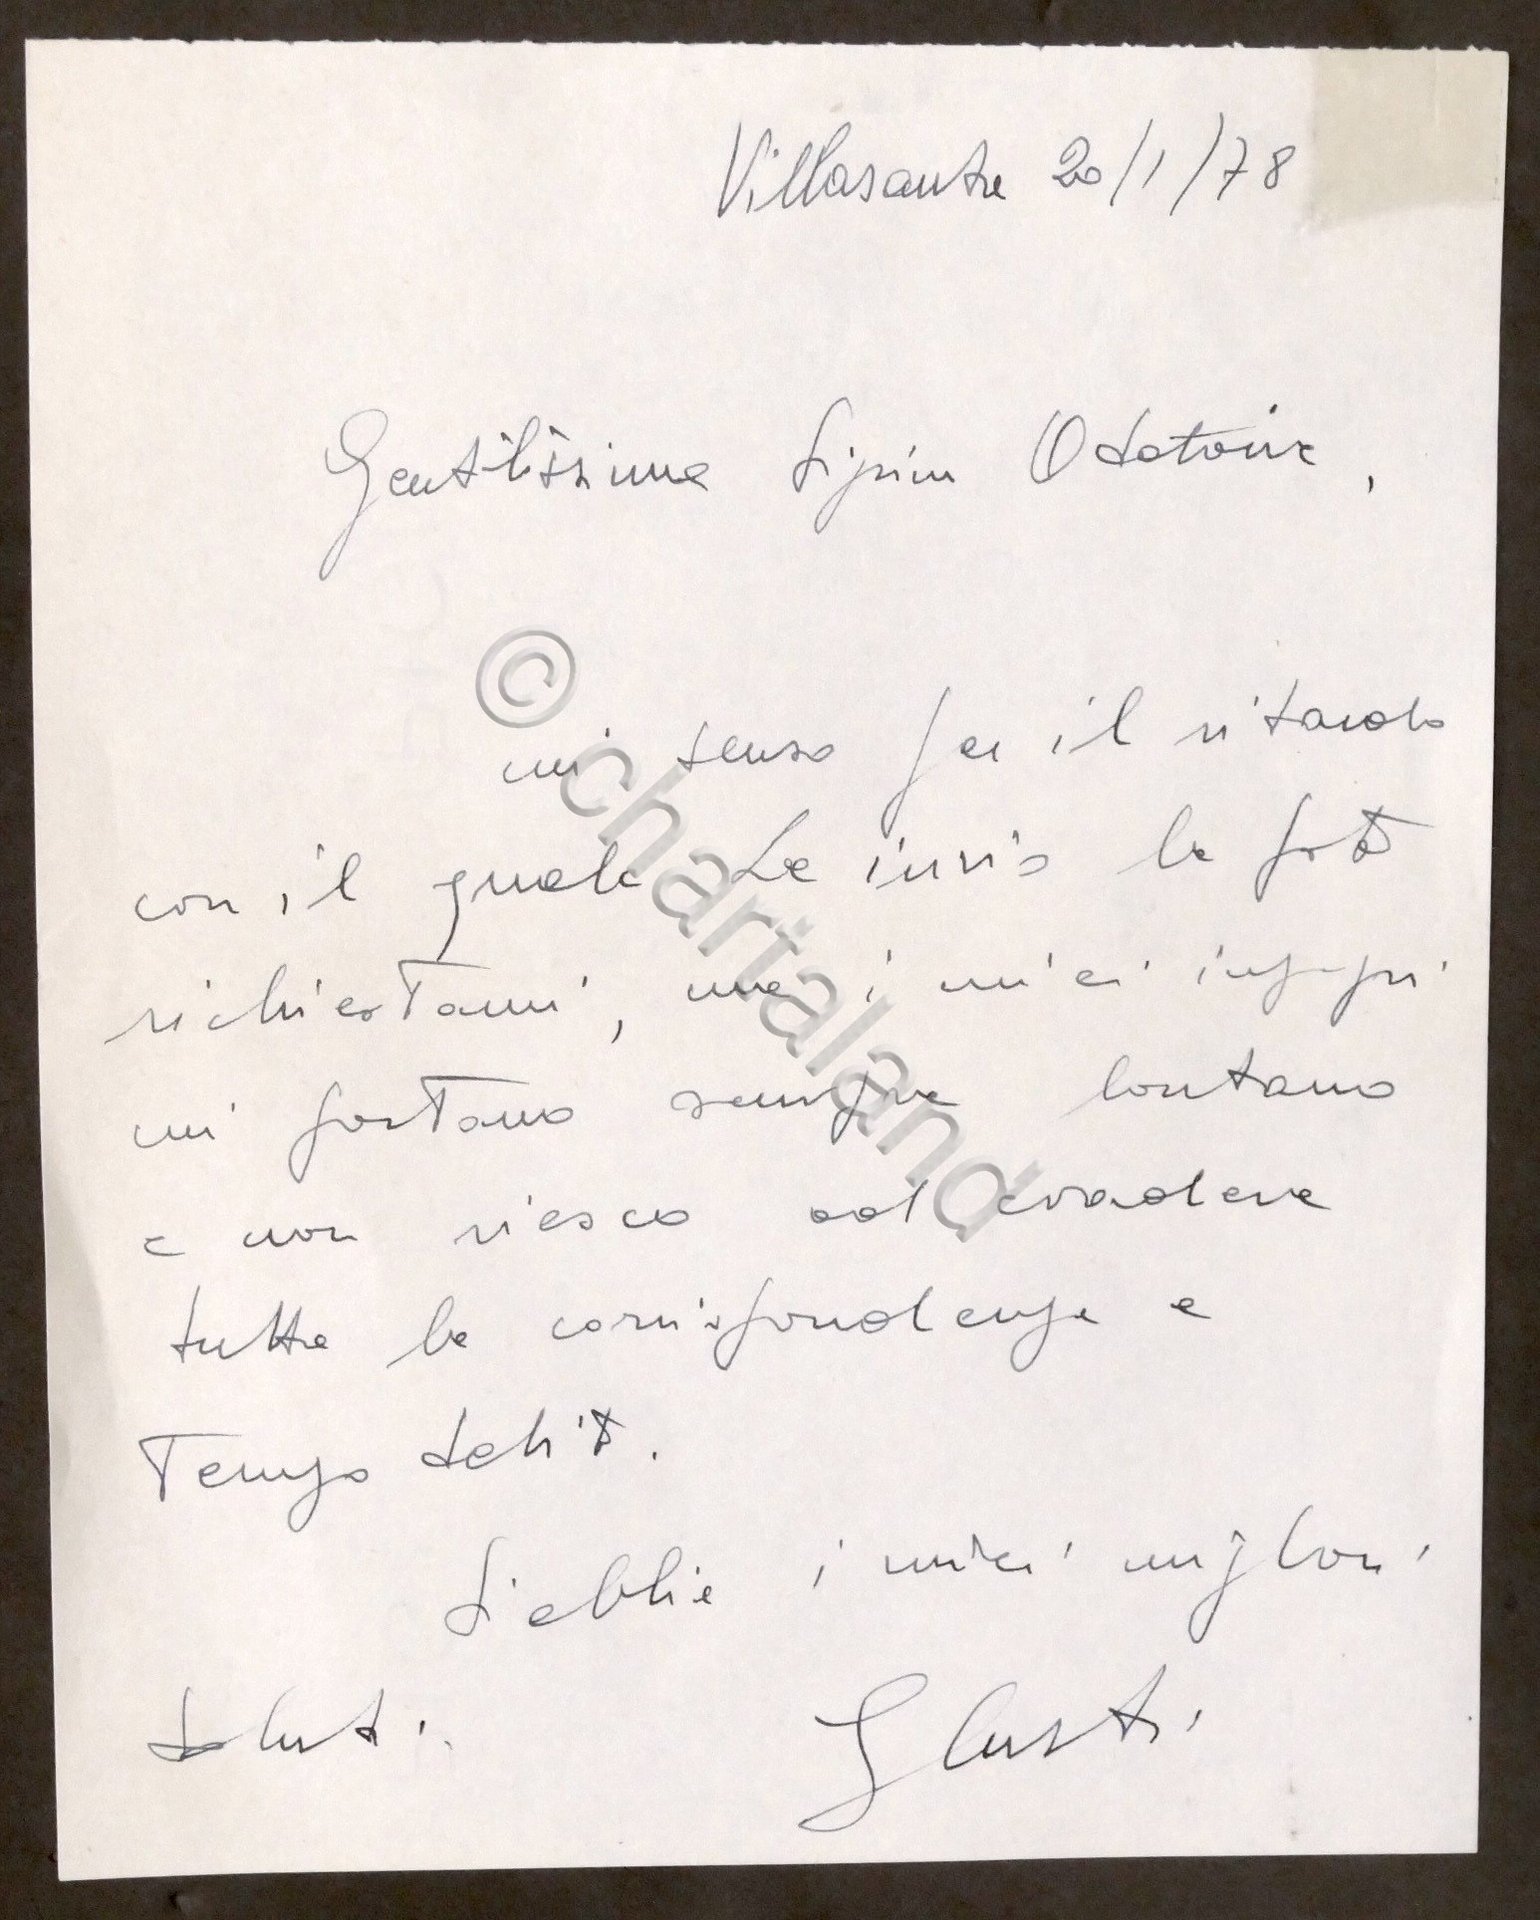 Villasanta 20/1/78
Gentilissima Sig.na
mi scuso per il ritardo
con il quale Le invio la foto
richiestami, ma i miei impegni
mi portano sempre lontano
e non riesco ad evadere
tutta la corrispondenza a
Tempo debito.
Si abbia i miei migliori
saluti.
© charialand